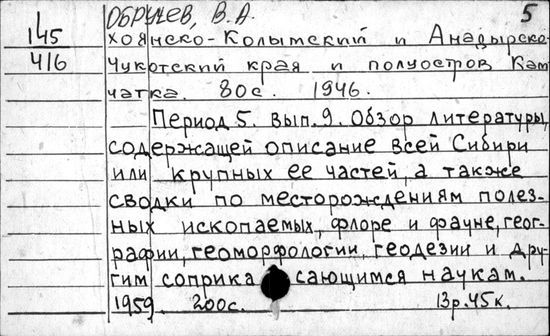 ОБРУЧЕВ, В.А. 5
145 хоянско-Колымский и Анадырско-
416 Чукотский края и полуостров Кам
чатка. 80с. 1946.
Период 5. вып.9. Обзор литературы,
содержащей описание всей Сибири
или крупных ее частей, а также
сводки по месторождениям полез-
ных ископаемых, флоре и фауне, геог-
рафии, геоморфологии, геодезии и дру-
гим соприка сающимся наукам.
1959. 200с. 13р.45к.